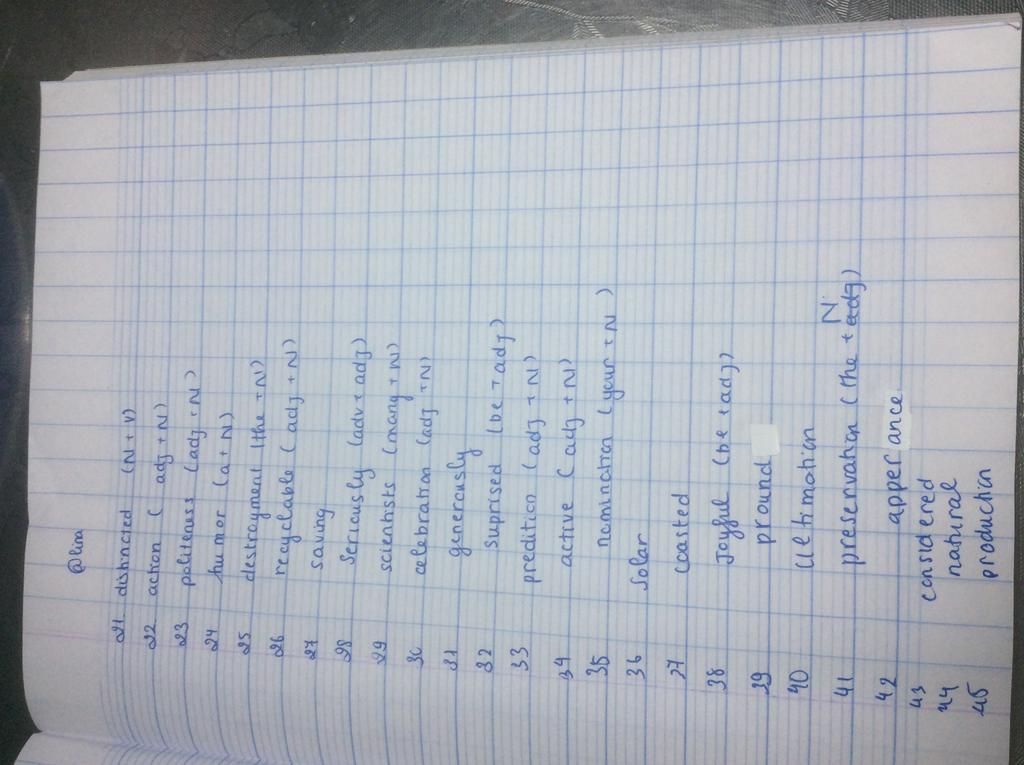 @lina
21. distincted (N + V)
22. action ( adj + N)
23 politeness (adj + N)
24 humor (a + N)
25 destroyment (the + N)
26 recyclable ( adj + N)
27 saving
28 Seriously (adv + adj)
29 scientists (many + N)
30 celebration (adj + N)
31 generously
32 suprised (be + adj)
33 predition (adj + N)
34 active ( adj + N)
35 nomination (your + N )
36 Solar
27 Coasted
38 Joyful (be + adj)
39 pround
40 Ultimation
41 preservation ( the + adj N)
42 apperance
43 considered
44 natural
45 production